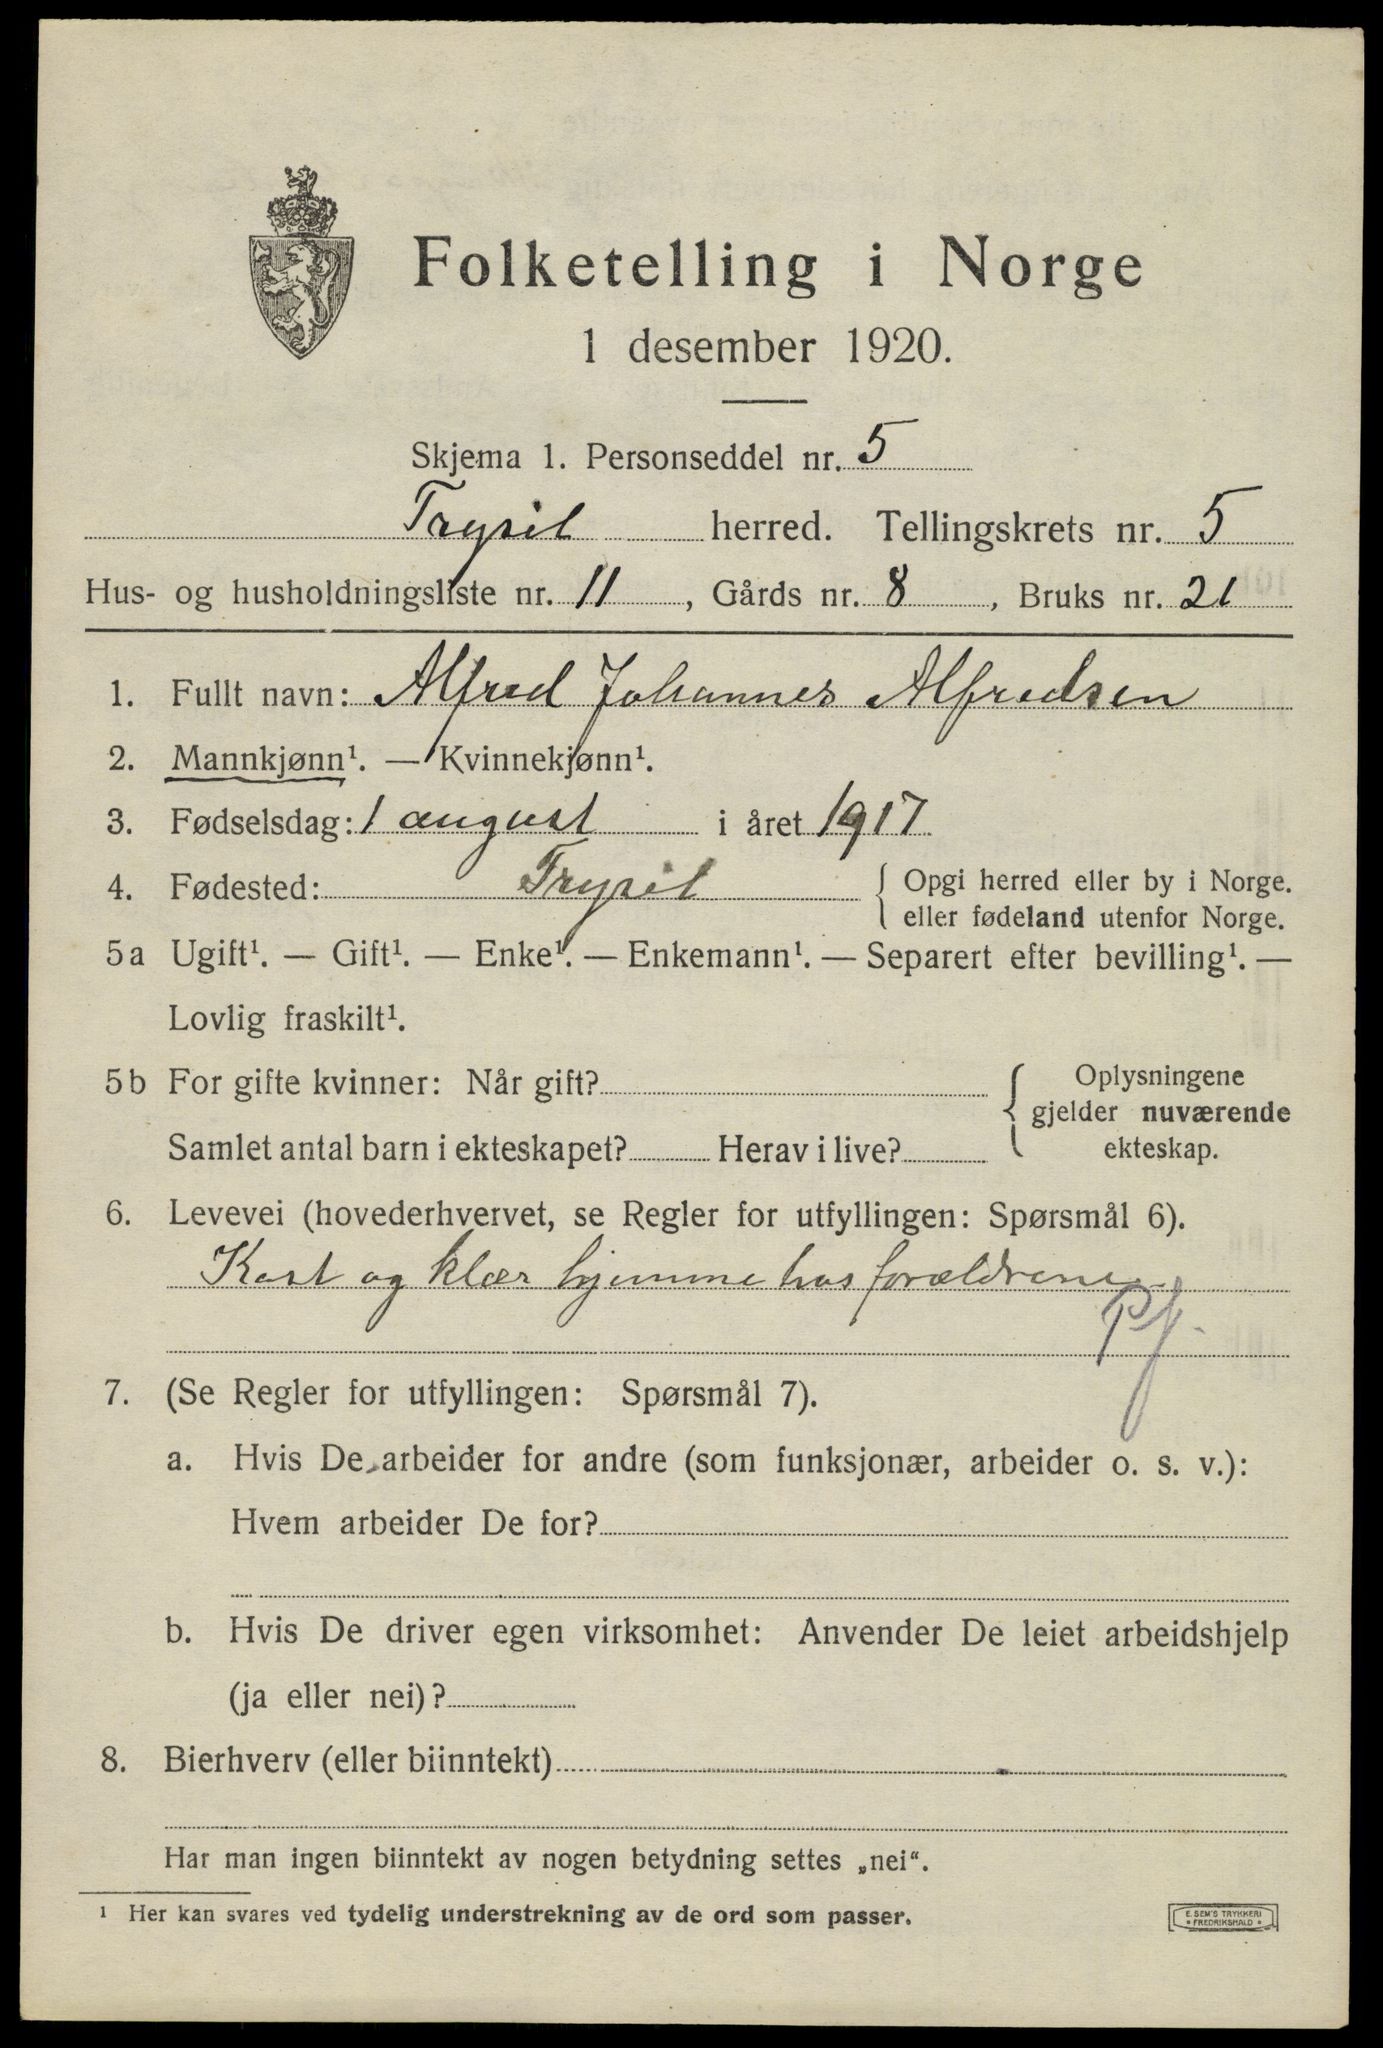 Folketelling i Norge
1 desember 1920.
Skjema 1. Personseddel nr. 5
Trysil herred. Tellingskrets nr. 5
Hus- og husholdningsliste nr. 11, Gårds nr. 8, Bruks nr. 21
1. Fullt navn: Alfred Johannes Alfredsen
2. Mannkjønn¹. — Kvinnekjønn¹.
3. Fødselsdag: 1 august i året 1917
4. Fødested: Trysil { Opgi herred eller by i Norge.
eller fødeland utenfor Norge.
5a Ugift¹. — Gift¹. — Enke¹. — Enkemann¹. — Separert efter bevilling¹. —
Lovlig fraskilt¹.
5b For gifte kvinner: Når gift? { Oplysningene
gjelder nuværende
Samlet antal barn i ekteskapet? Herav i live? ekteskap.
6. Levevei (hovederhvervet, se Regler for utfyllingen: Spørsmål 6).
Kost og klær hjemme hos forældrene
Pf.
7. (Se Regler for utfyllingen: Spørsmål 7).
a. Hvis De arbeider for andre (som funksjonær, arbeider o. s. v.):
Hvem arbeider De for?
b. Hvis De driver egen virksomhet: Anvender De leiet arbeidshjelp
(ja eller nei)?
8. Bierhverv (eller biinntekt)
Har man ingen biinntekt av nogen betydning settes „nei“.
¹ Her kan svares ved tydelig understrekning av de ord som passer.
E. SEM'S TRYKKERI
* FREDRIKSHALD *